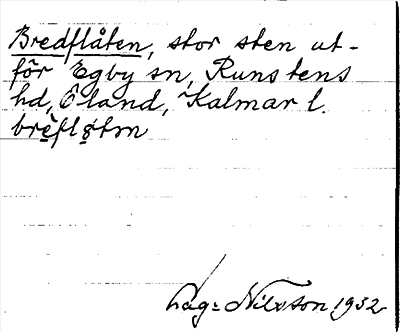 Bredflåten, stor sten ut-
för Egby sn, Runstens
hd, Öland, Kalmar l.
brèflǫtən
Nilsson 1932